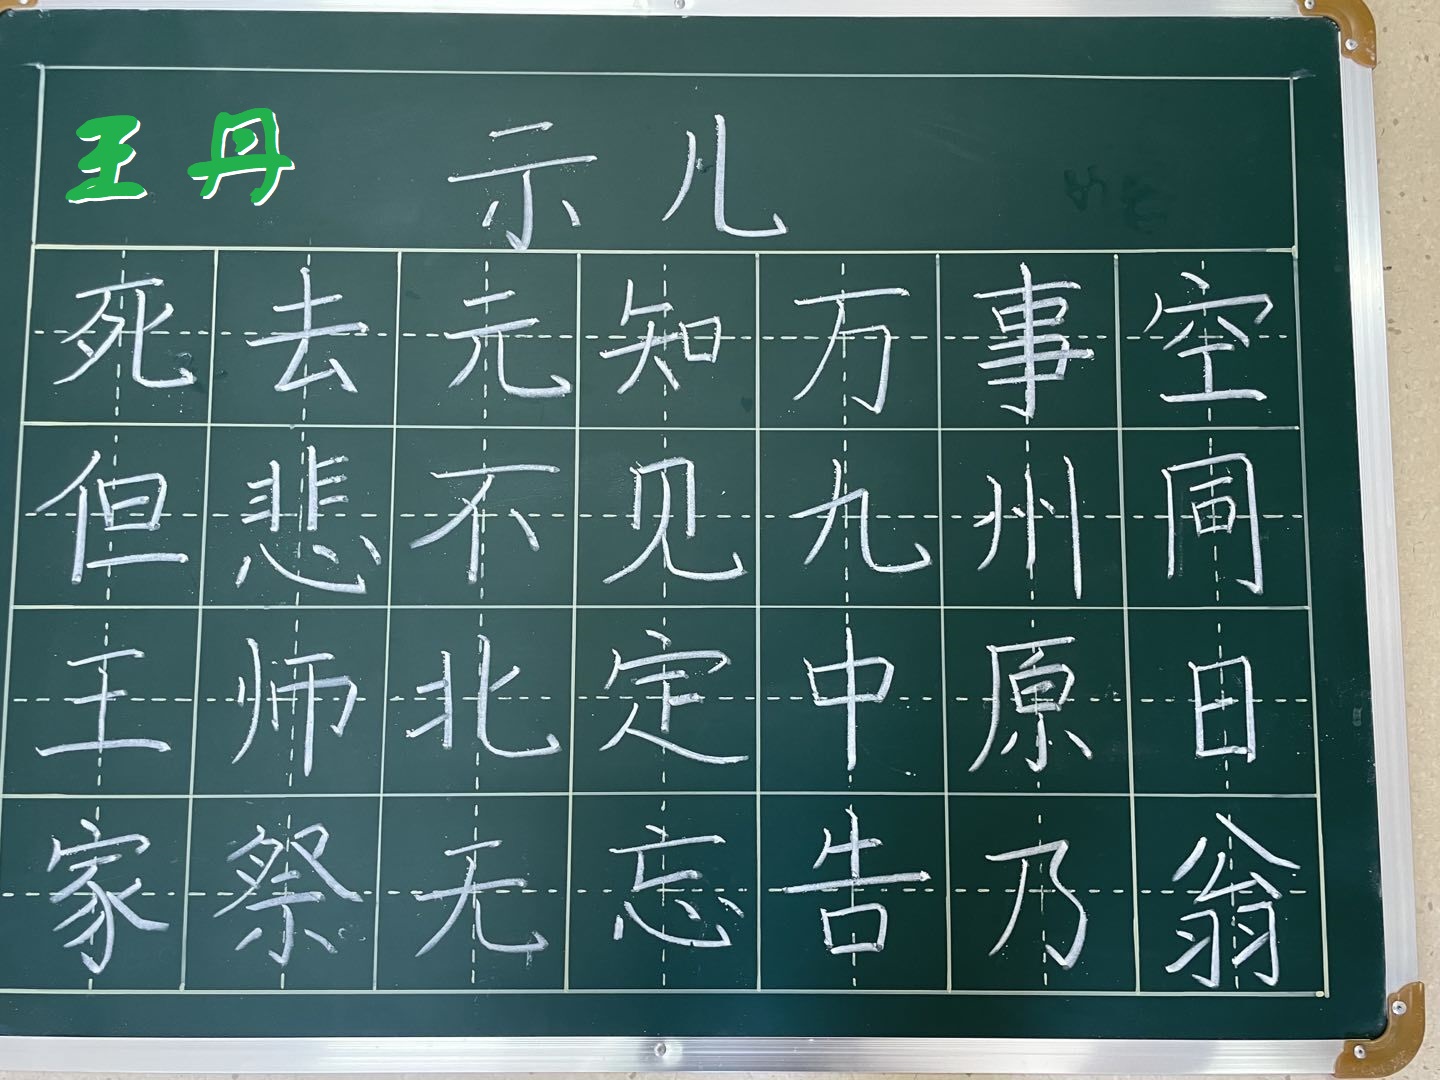 王丹
示儿
死去元知万事空
但悲不见九州同
王师北定中原日
家祭无忘告乃翁